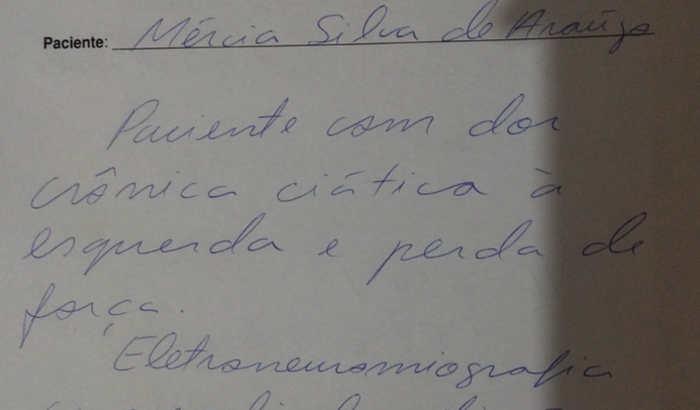 Paciente: Mércia Silva de Araújo
Paciente com dor
crônica ciática à
esquerda e perda de
força.
Eletroneuromiografia